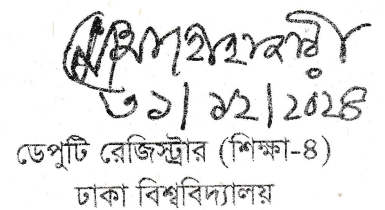 ৩১/১২/2024
ডেপুটি রেজিস্ট্রার (শিক্ষা-৪)
ঢাকা বিশ্ববিদ্যালয়